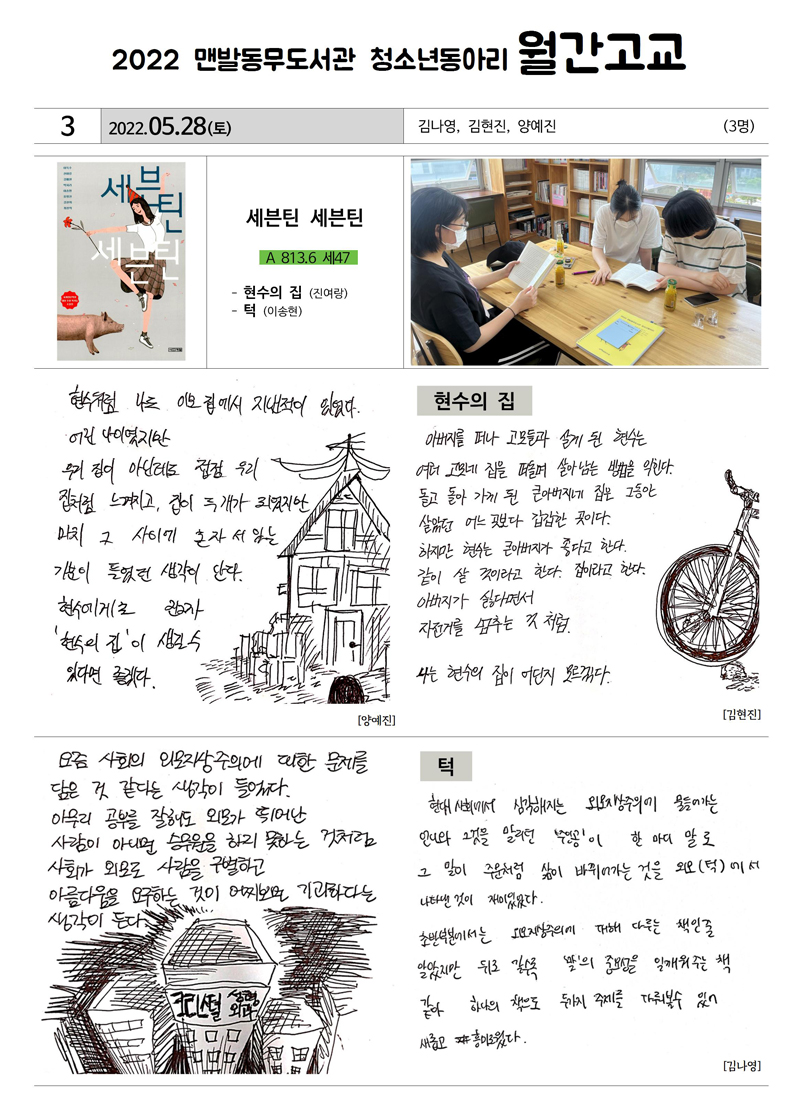 2022 맨발동무도서관 청소년동아리 월간고교
3
2022.05.28(토)
김나영, 김현진, 양예진
(3명)
세븐틴
세븐틴
세븐틴 세븐틴
A 813.6 세47
- 현수의 집 (진여랑)
- 턱 (이송현)
현수처럼 나도 이모집에서 지낸적이 있었다.
어린 나이였지만
우리 집이 아닌데도 점점 우리
집처럼 느껴지고, 집이 두개가 되었지만
마치 그 사이에 혼자 서 있는
기분이 들었던 생각이 난다.
현수에게도 혼자
'현수의 집'이 생길 수
있다면 좋겠다.
[양예진]
현수의 집
아버지를 떠나 고모들과 살게 된 현수는
여러 고모네 집을 떠돌며 살아남는 방법을 익힌다.
돌고 돌아 가게 된 큰아버지네 집은 그동안
살았던 어느 곳보다 갑갑한 곳이다.
하지만 현수는 큰아버지가 좋다고 한다.
같이 살 것이라고 한다. 집이라고 한다.
아버지가 싫다면서
자전거를 멈추는 것 처럼.
나는 현수의 집이 어딘지 모르겠다.
[김현진]
요즘 사회의 외모지상주의에 대한 문제를
담은 것 같다는 생각이 들었다.
아무리 공부를 잘해도 외모가 뛰어난
사람이 아니면 승무원을 하지 못하는 것처럼
사회가 외모로 사람을 구별하고
아름다움을 요구하는 것이 어찌보면 기괴하다는
생각이 든다.
크리스털 성형외과
턱
현대 사회에서 심각해지는 외모지상주의에 물들어가는
언니와 그것을 말리던 '주인공'이 한 마디 말로
그 말이 주문처럼 삶이 바뀌어가는 것을 외모(턱)에서
나타낸 것이 재미있었다.
초반부분에서는 외모지상주의에 대해 다루는 책인줄
알았지만 뒤로 갈수록 '말'의 중요성을 일깨워주는 책
같아 하나의 책으로 두가지 주제를 다뤄볼수 있어
새롭고 흥미로웠다.
[김나영]